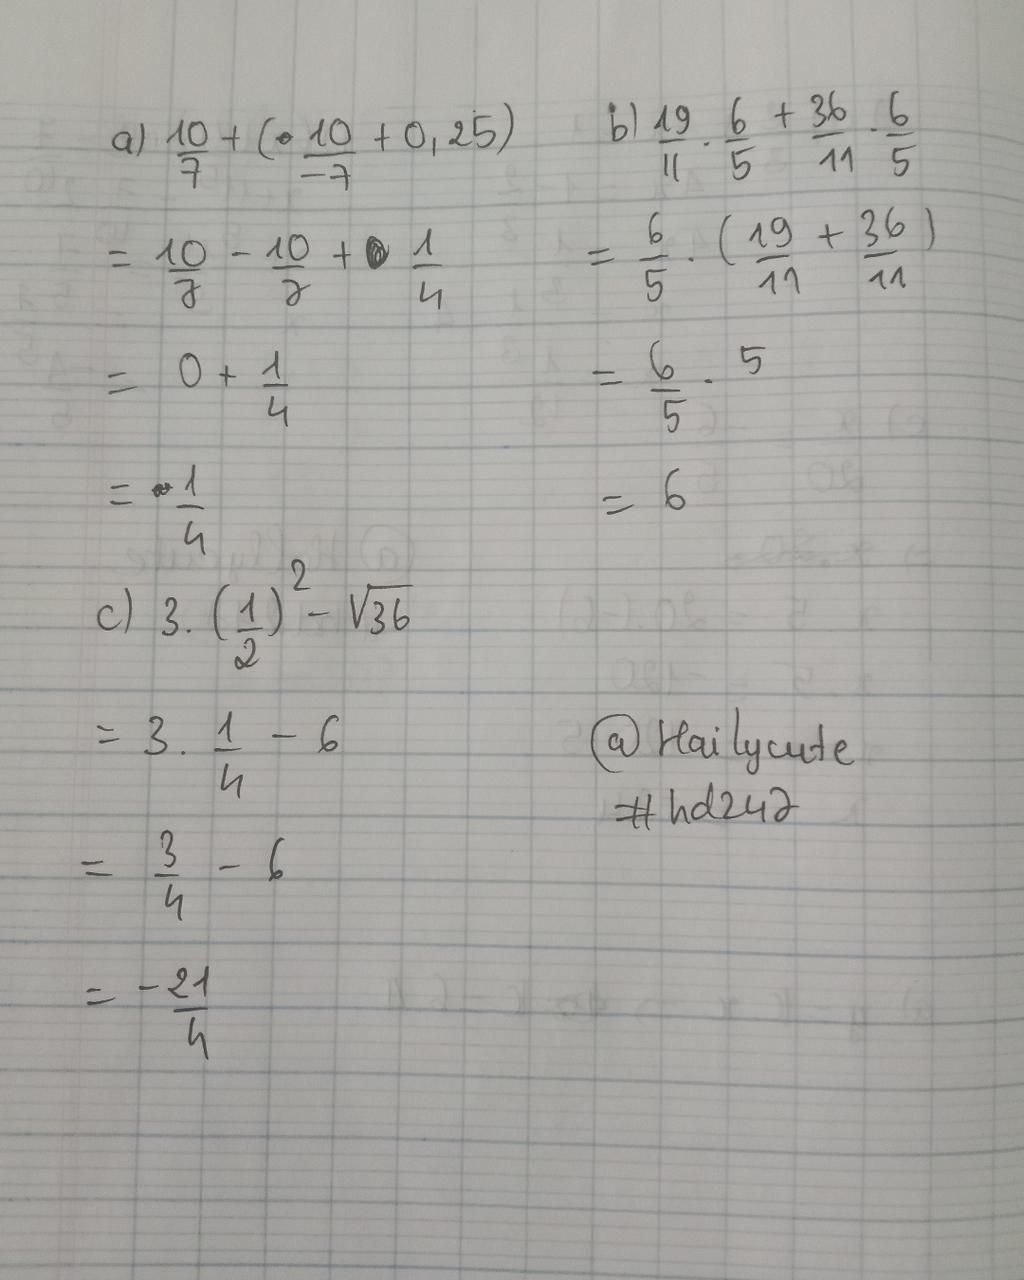 a) 10/7 + (10/-7 + 0,25)
= 10/7 - 10/7 + 1/4
= 0 + 1/4
= 1/4
b) 19/11 . 6/5 + 36/11 . 6/5
= 6/5 . (19/11 + 36/11)
= 6/5 . 5
= 6
c) 3. (1/2)² - √36
= 3. 1/4 - 6
= 3/4 - 6
= -21/4
@Hailycute
#hd247